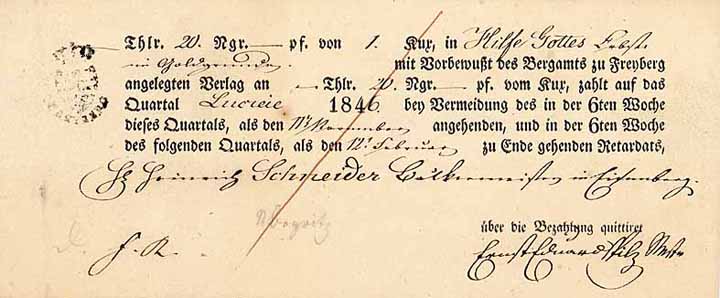 Thlr. 20. Ngr. — pf. von 1. Kux, in Hilfe Gottes Erbst.
im Goldgrunde mit Vorbewußt des Bergamts zu Freyberg
angelegten Verlag an — Thlr. 20 Ngr. — pf. vom Kux, zahlt auf das
Quartal Luciae 1846 bey Vermeidung des in der 6ten Woche
dieses Quartals, als den 11t November angehenden, und in der 6ten Woche
des folgenden Quartals, als den 12t Februar zu Ende gehenden Retardats,
Heinrich Schneider Bäckermeister in Eisenberg.
über die Bezahlung quittiret
Ernst Eduard Pilz